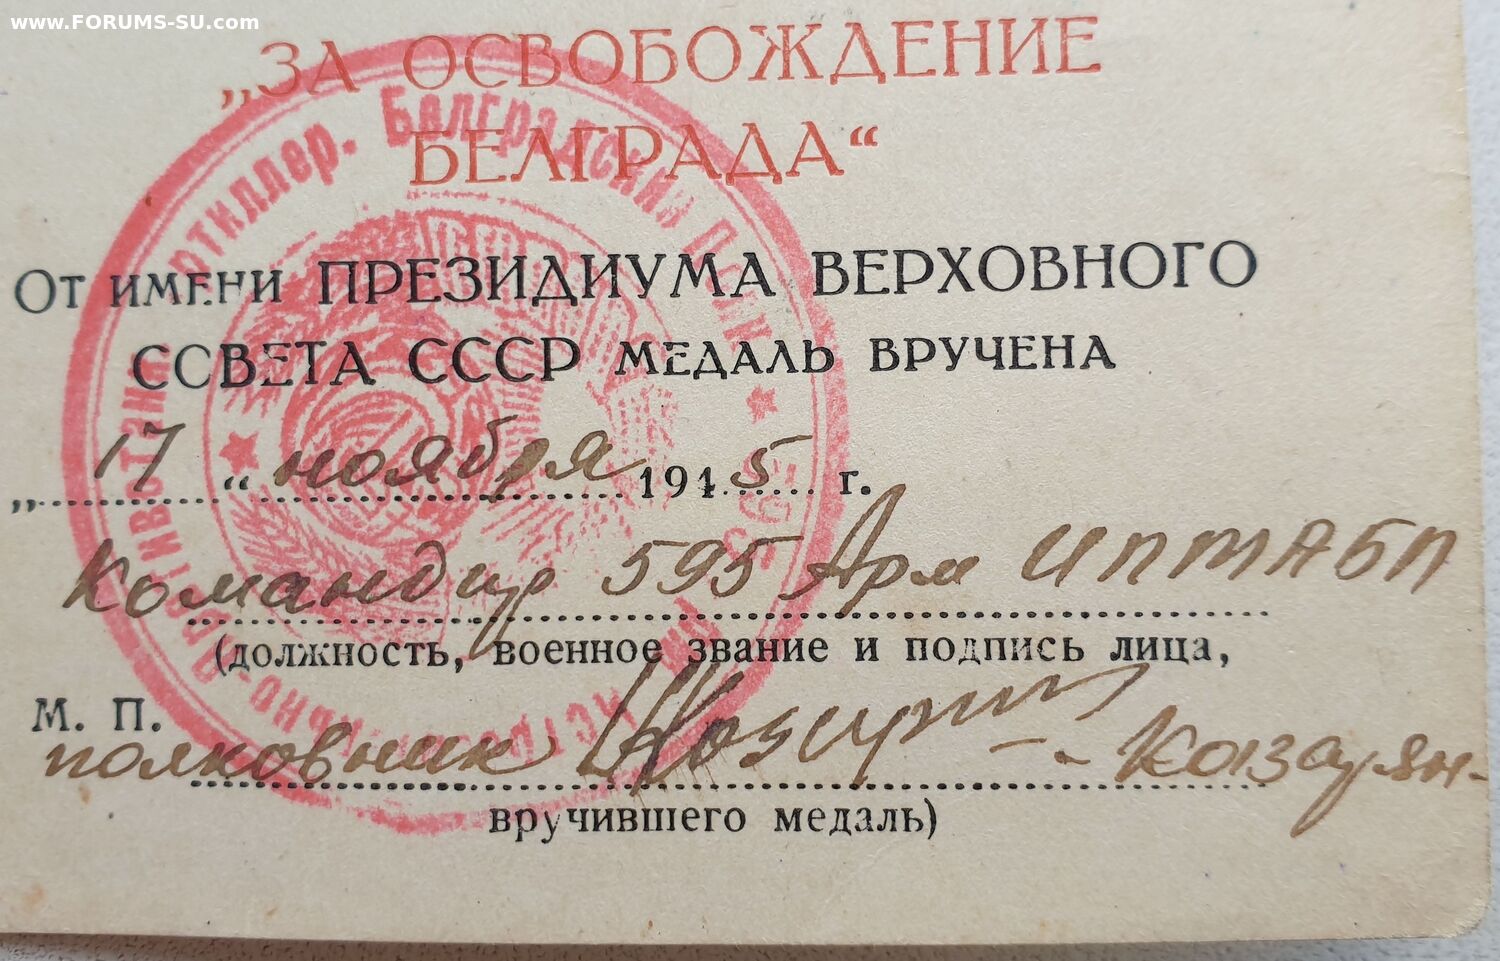 www.FORUMS-SU.com
„ЗА ОСВОБОЖДЕНИЕ
БЕЛГРАДА“
От имени ПРЕЗИДИУМА ВЕРХОВНОГО
СОВЕТА СССР МЕДАЛЬ ВРУЧЕНА
„17“ ноября 1945 г.
Командир 595 Арм ИПТАБП
(должность, военное звание и подпись лица,
М. П.
полковник - Козарян-
вручившего медаль)
артиллер. Белградский Полк